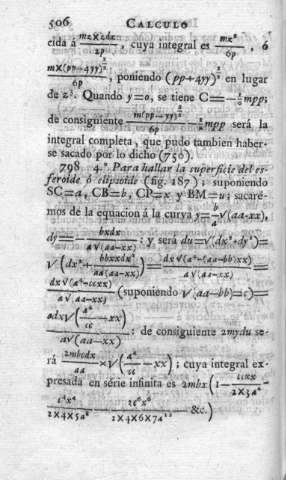 506 CALCULO
cida á mz×zdz/2p, cuya integral es mz³/6p, ó
m×(pp+4yy)^3/2 / 6p, poniendo (pp+4yy)^1/2 en lugar
de z³. Quando y=0, se tiene C=-1/6 mpp;
de consiguiente m(pp+4yy)^3/2 / 6p - 1/6 mpp será la
integral completa, que pudo tambien haber-
se sacado por lo dicho (756).
798 4.º Para hallar la superficie del es-
feroide ó elipsoide (fig. 187); suponiendo
SC=a, CB=b, CP=x y BM=u; sacaré-
mos de la equacion á la curva y=b/a √(aa-xx),
dy= bxdx/a√(aa-xx): y será du=√(dx²+dy²)=
√(dx²+ bbxxdx²/aa(aa-xx))= dx√(a⁴-(aa-bb)xx)/a√(aa-xx)=
dx√(a⁴-ccxx)/a√(aa-xx) (suponiendo √(aa-bb)=c)=
cdx√(a⁴/cc -xx)/a√(aa-xx): de consiguiente 2mydu se-
rá 2mbcdx/aa ×√(a⁴/cc -xx); cuya integral ex-
presada en série infinita es 2mbx(1- ccxx/2×3a⁴ -
c⁴x⁴/2×4×5a⁸ - 3c⁶x⁶/2×4×6×7a¹² - &c.)